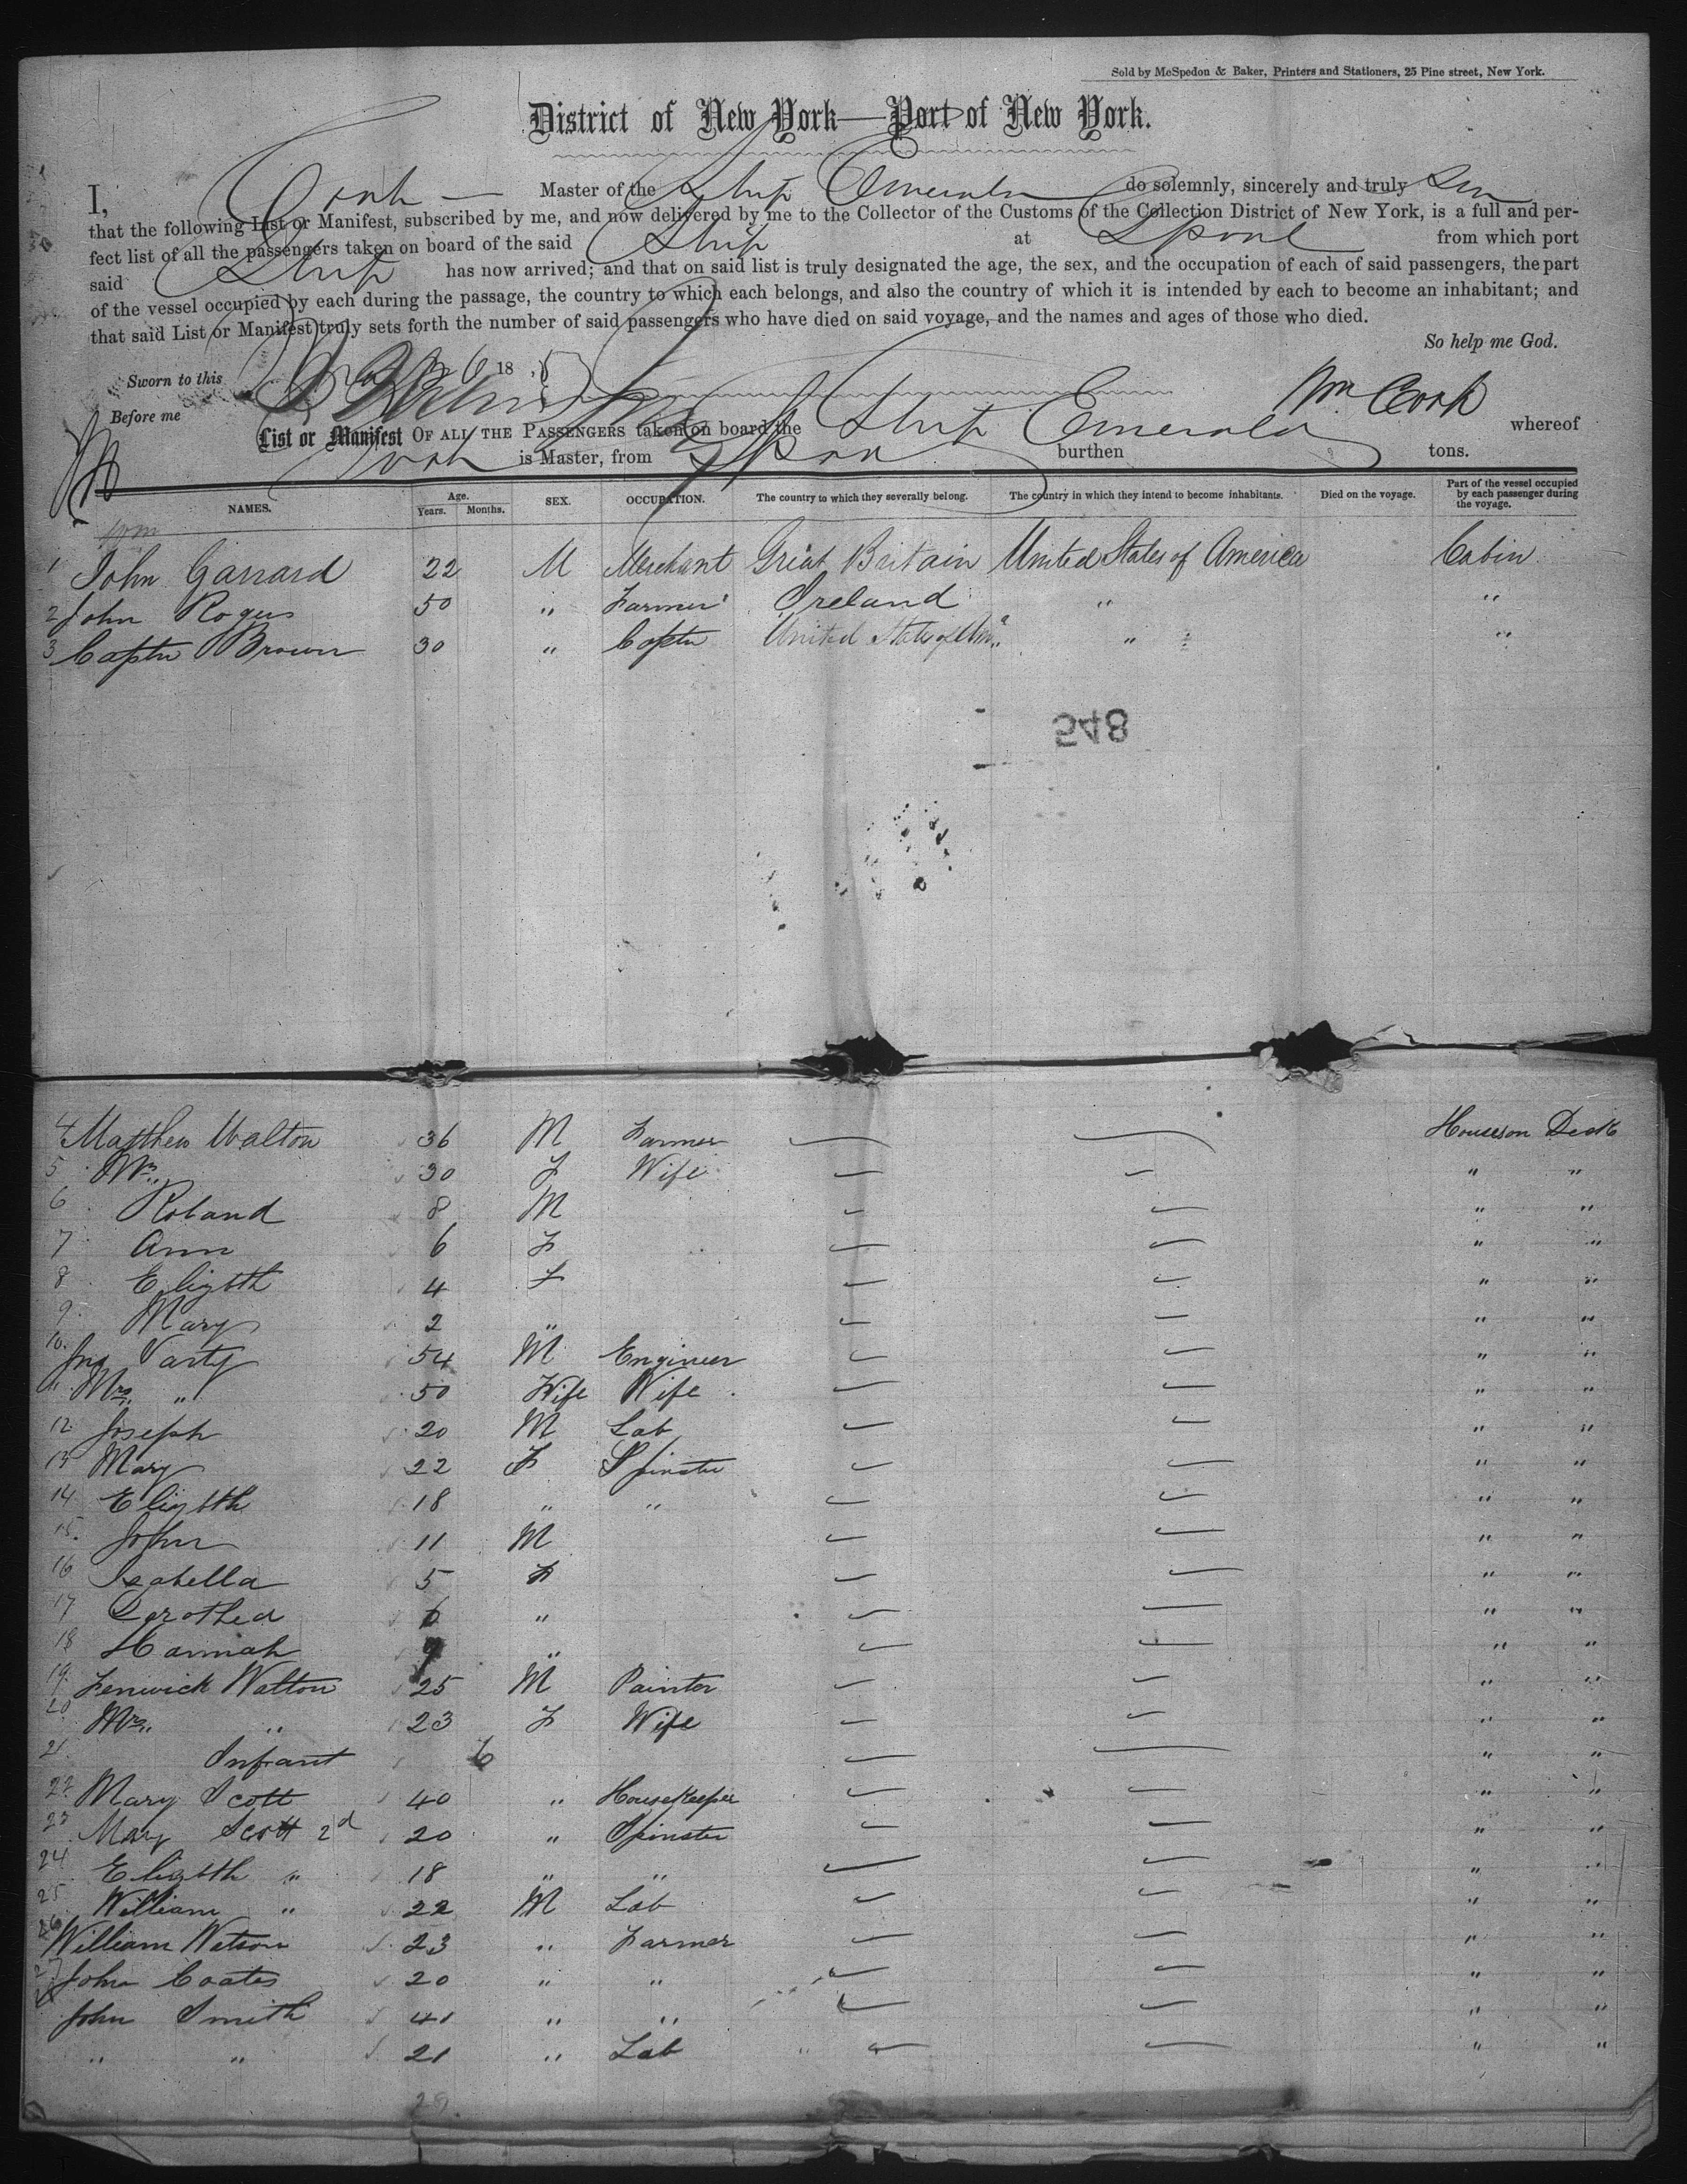 Sold by McSpedon & Baker, Printers and Stationers, 25 Pine street, New York.
District of New York—Port of New York.
I, Cook — Master of the Ship Emerald do solemnly, sincerely and truly
that the following List or Manifest, subscribed by me, and now delivered by me to the Collector of the Customs of the Collection District of New York, is a full and per-
fect list of all the passengers taken on board of the said Ship at Lpool from which port
said Ship has now arrived; and that on said list is truly designated the age, the sex, and the occupation of each of said passengers, the part
of the vessel occupied by each during the passage, the country to which each belongs, and also the country of which it is intended by each to become an inhabitant; and
that said List or Manifest truly sets forth the number of said passengers who have died on said voyage, and the names and ages of those who died.
So help me God.
Sworn to this 6 18
Before me Wm Cook
List or Manifest OF ALL THE PASSENGERS taken on board the Ship Emerald whereof
Cook is Master, from Lpool burthen tons.
NAMES. Age. Years. Months. SEX. OCCUPATION. The country to which they severally belong. The country in which they intend to become inhabitants. Died on the voyage. Part of the vessel occupied by each passenger during the voyage.
1 John Garrard 22 M Merchant Great Britain United States of America Cabin
2 John Rogers 50 " Farmer Ireland " "
3 Captn Brown 30 " Captn United States of Ama " "
548
4 Matthew Walton 36 M Farmer — — Houseson Deck
5 Mrs " 30 F Wife — — " "
6 Roland 8 M — — " "
7 Ann 6 F — — " "
8 Elizbth 4 F — — " "
9 Mary 2 " — — " "
10 Jno Varty 54 M Engineer — — " "
11 Mrs " 50 Wife Wife — — " "
12 Joseph 20 M Lab — — " "
13 Mary 22 F Spinster — — " "
14 Elizbth 18 " " — — " "
15 John 11 M — — " "
16 Isabella 5 F — — " "
17 Dorothea 6 " — — " "
18 Hannah 9 " — — " "
19 Fenwick Walton 25 M Painter — — " "
20 Mrs " 23 F Wife — — " "
21 Infant 6 — — " "
22 Mary Scott 40 " HouseKeeper — — " "
23 Mary Scott 2d 20 " Spinster — — " "
24 Elizbth " 18 " " — — " "
25 William " 22 M Lab — — " "
26 William Watson 23 " Farmer — — " "
27 John Coates 20 " " — — " "
John Smith 41 " " — — " "
" " 21 " Lab — — " "
29